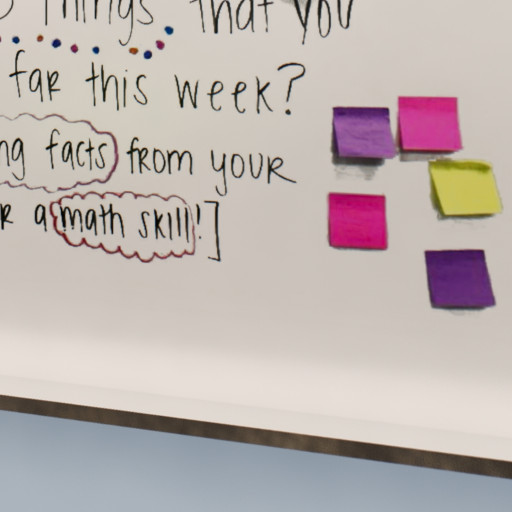 Things that you
far this week?
ng facts from your
r a math skill!]